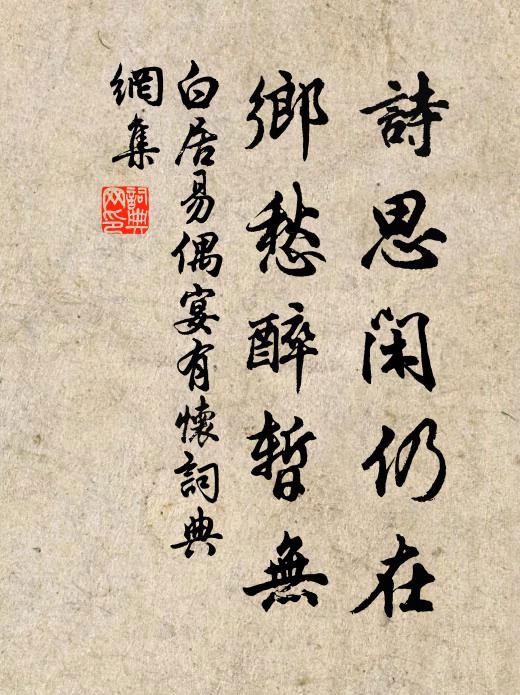 詩思閑仍在
鄉愁醉暫無
白居易偶宴有懷詞典
網集
詞典
网印